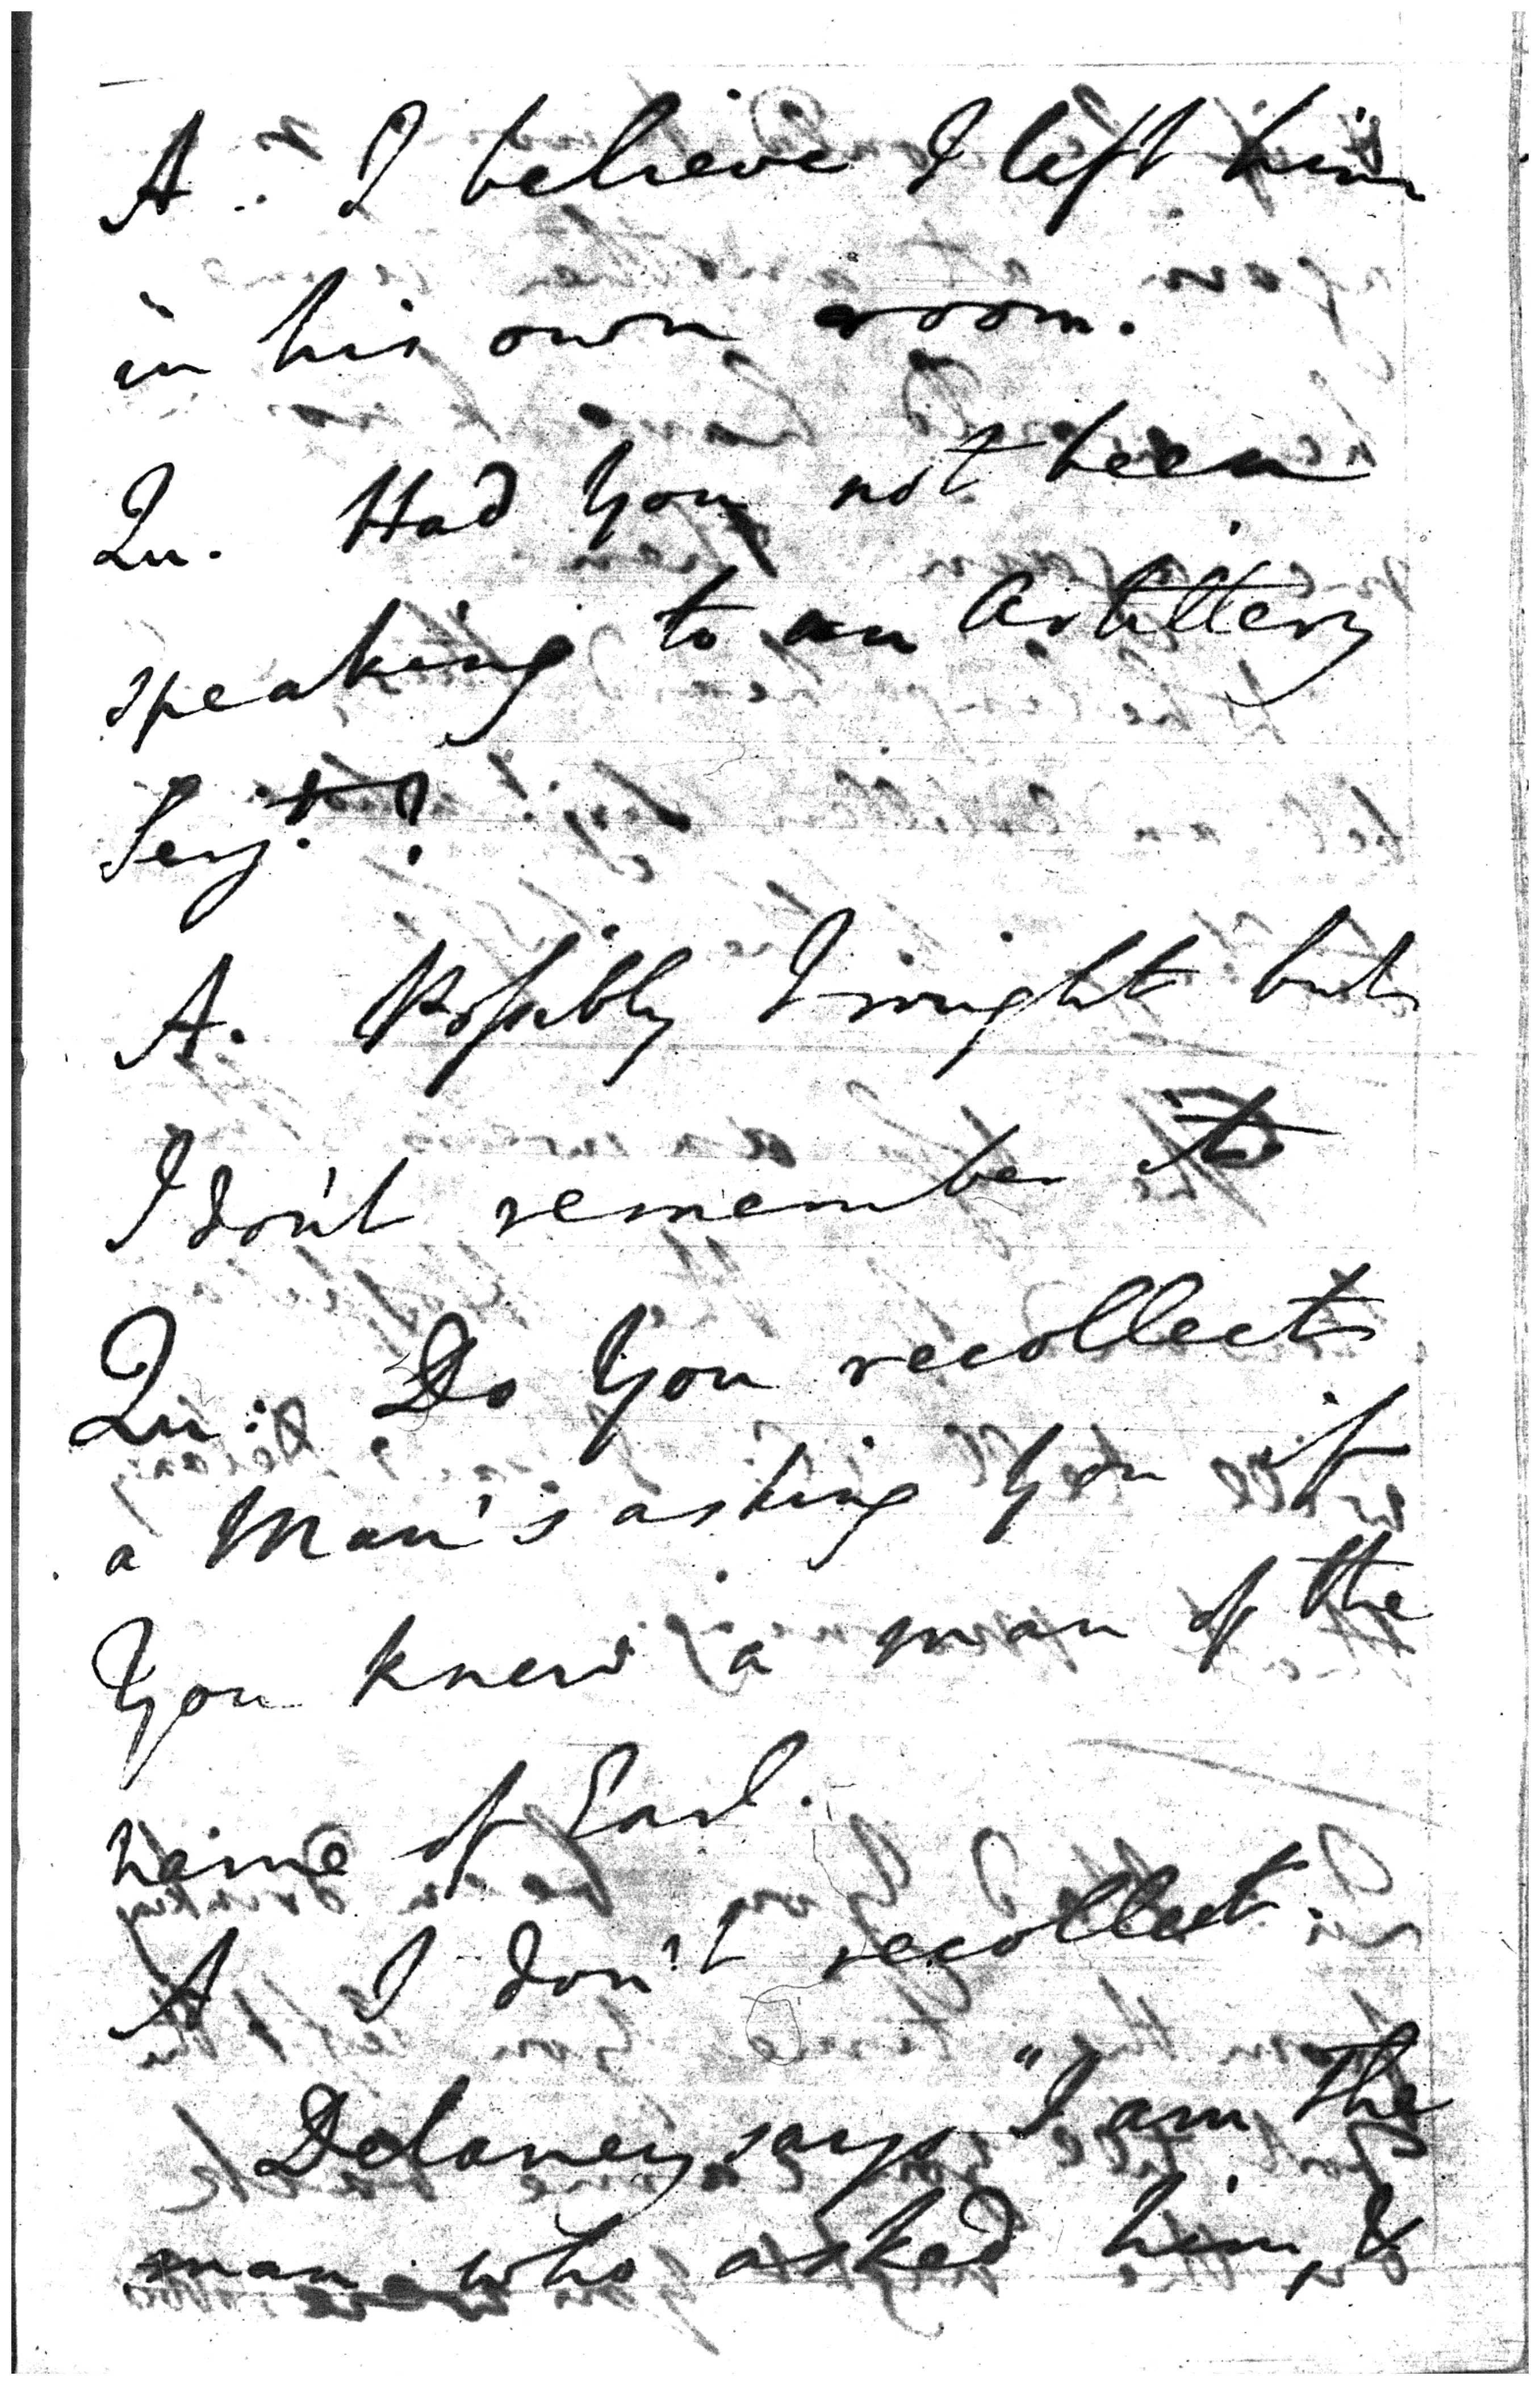 A. I believe I left him
in his own room.
Qu. Had You not been
speaking to an Artillery
Serjt.?
A. Possibly I might but
I don't remember it
Qu: Do You recollect
a Man's asking You if
You knew a man of the
name of Earl.
A I don't recollect.
Delaney says "I am the
man who asked him, &